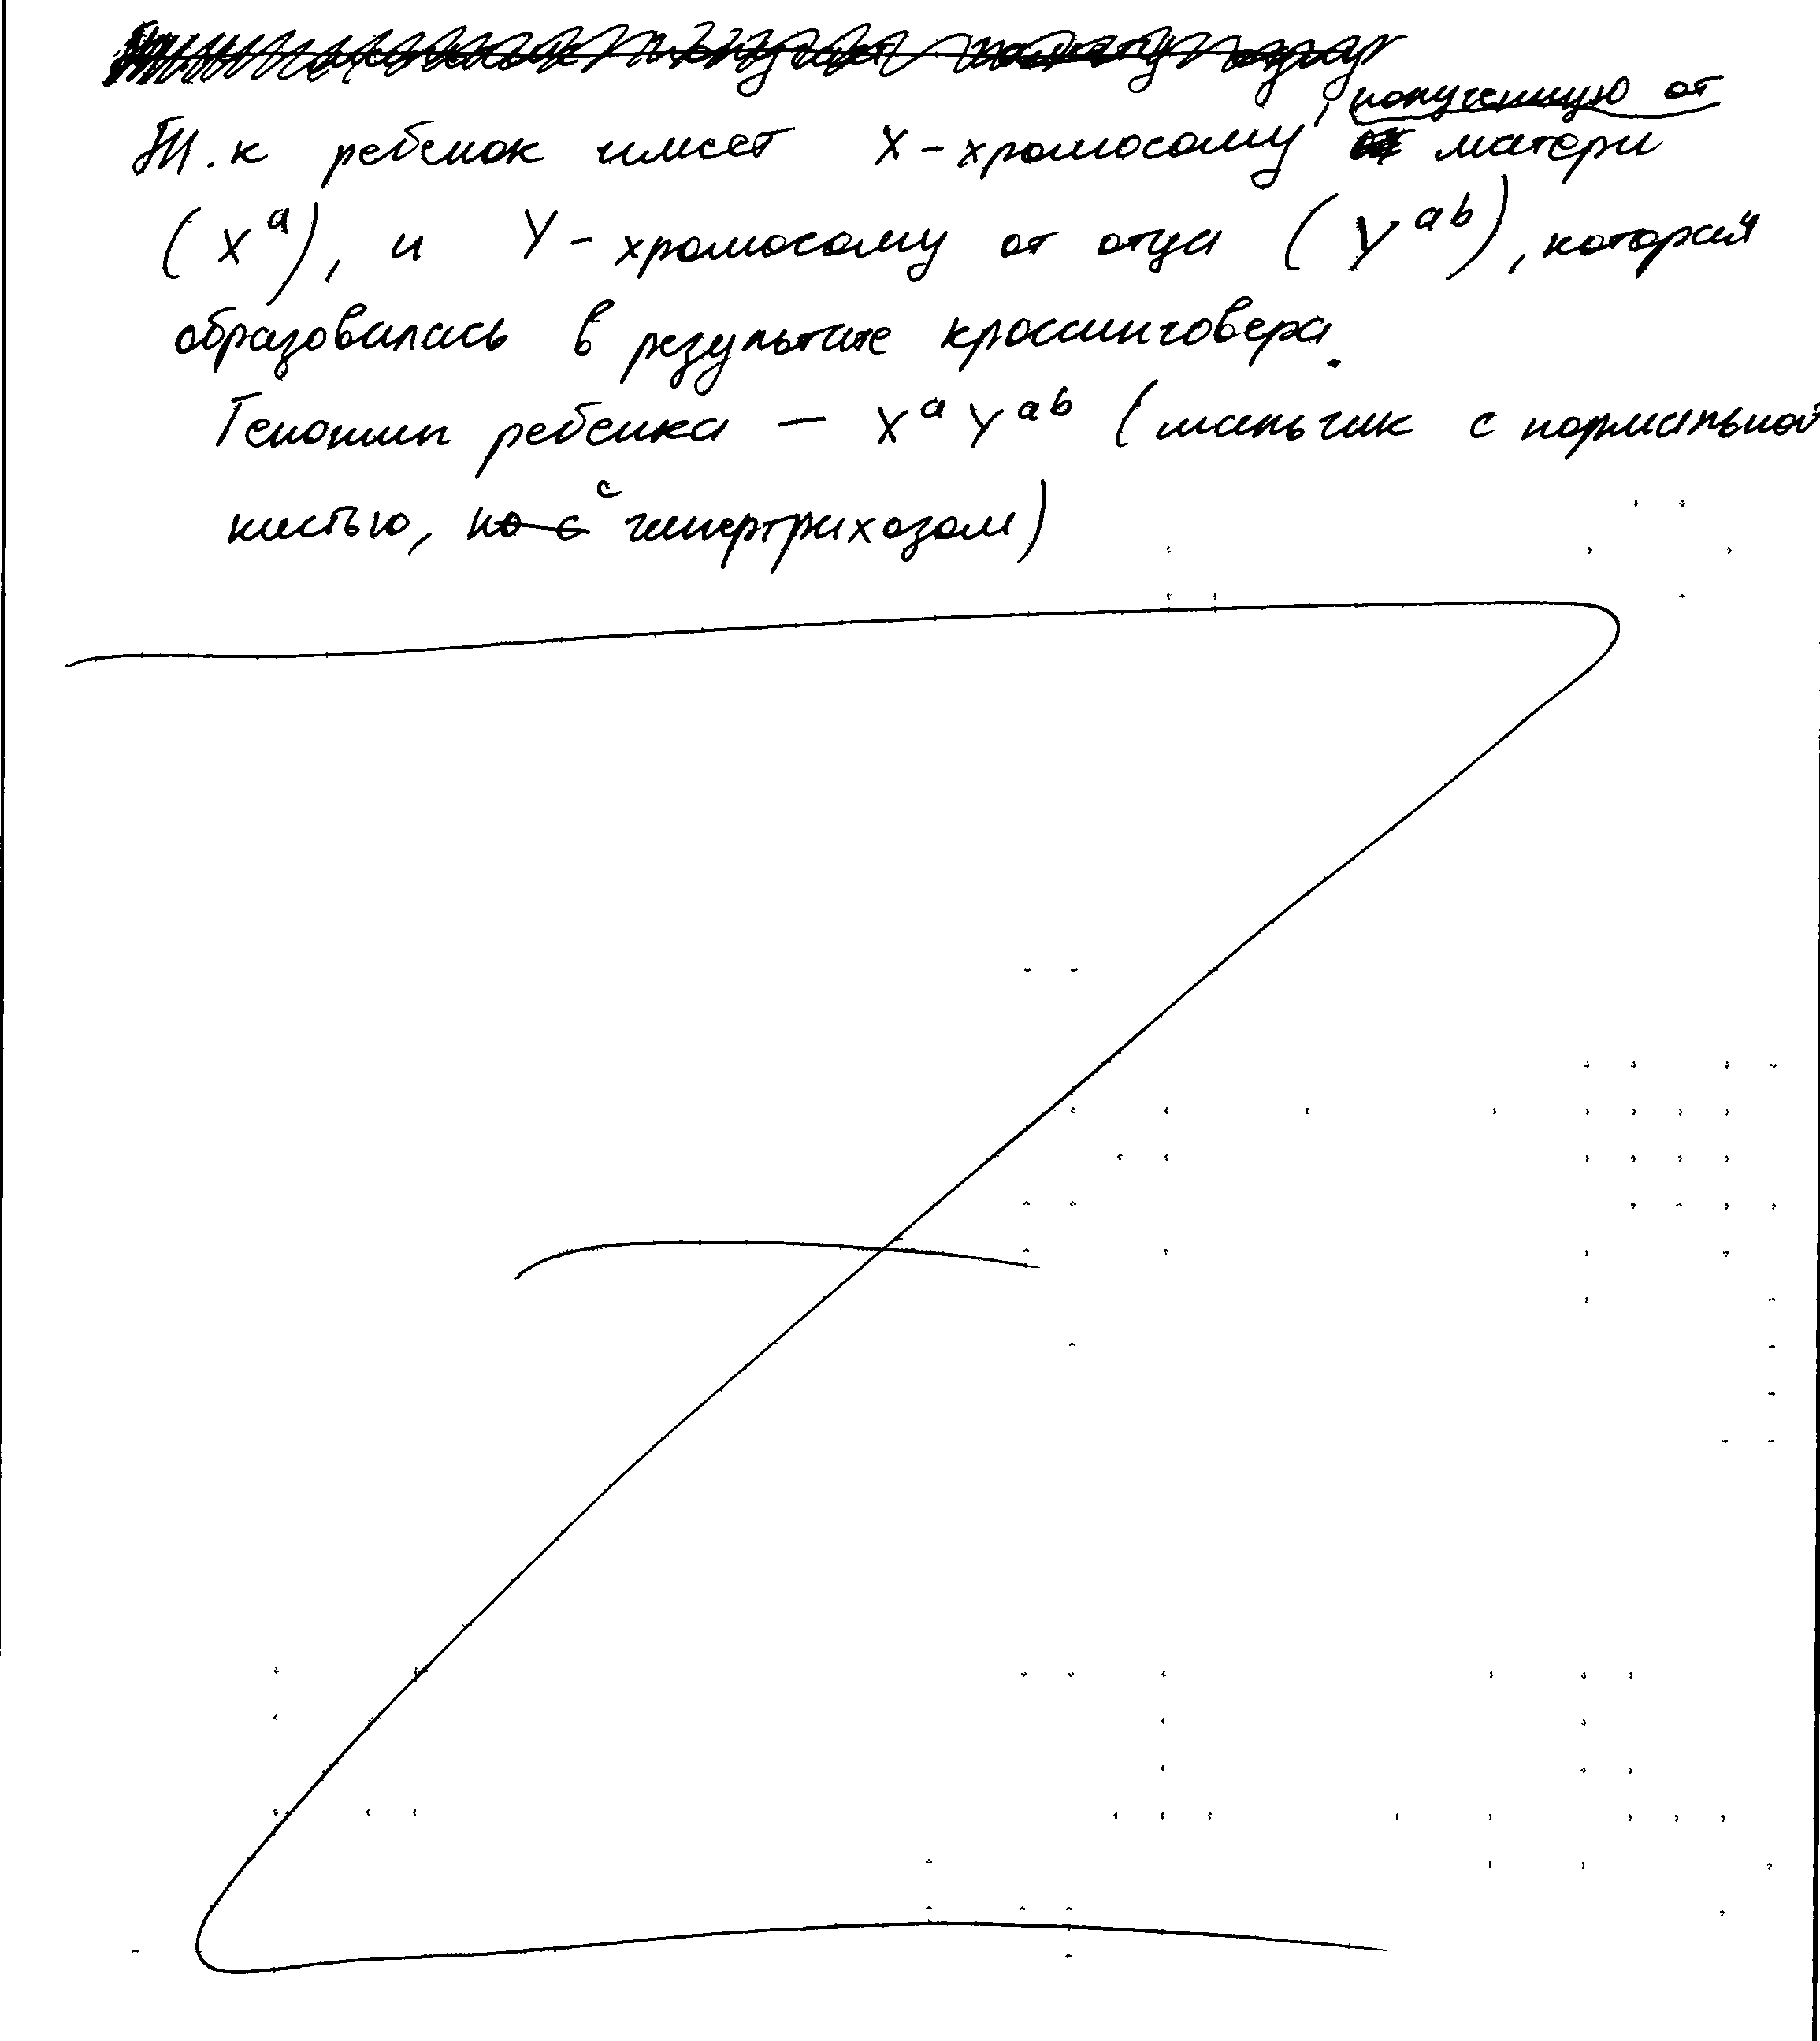 , полученную от
Т.к ребенок имеет X-хромосому матери
(Xᵃ), и Y-хромосому от отца (Yᵃᵇ), которая
образовалась в результате кроссинговера.
Генотип ребенка — XᵃYᵃᵇ (мальчик с нормальной
кистью, с гипертрихозом)